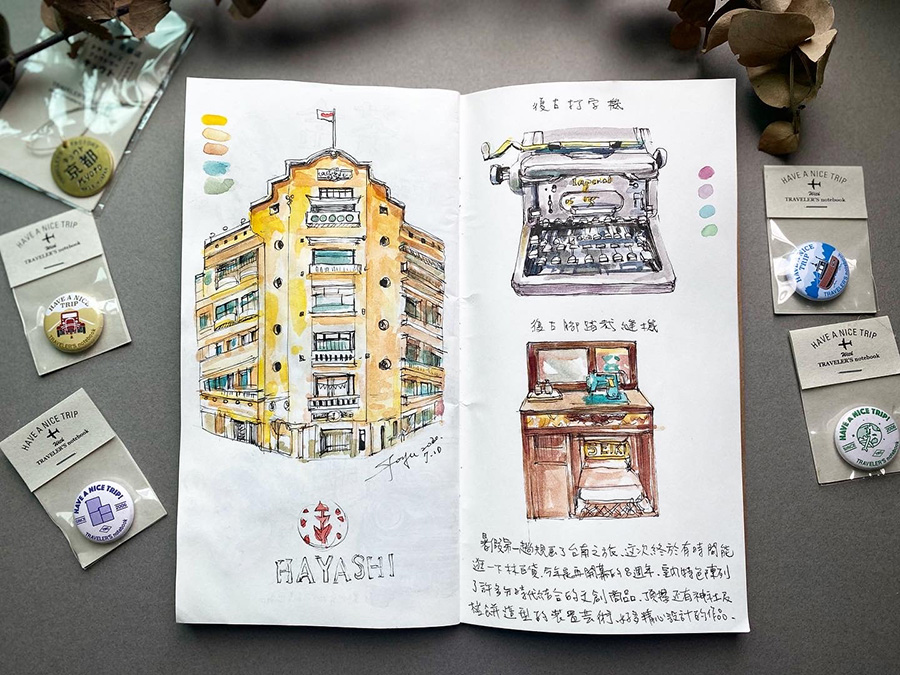 京都
KYOTO
HAVE A NICE TRIP
With
TRAVELER'S notebook
HAVE A NICE TRIP
TRAVELER'S notebook
HAVE A NICE TRIP
With
TRAVELER'S notebook
HAVE A NICE TRIP!
TRAVELER'S notebook
HAYASHI
復古打字機
Imperial
復古腳踏裁縫機
SEIKI
暑假第一趟規畫了台南之旅,這次終於有時間能
逛一下林百貨.今年是再開幕的8週年,室內特色陳列
了許多年時代結合的文創商品.頂樓還有神社及
椪餅造型的裝置藝術,好多精心設計的作品.
HAVE A NICE TRIP
With
TRAVELER'S notebook
HAVE A NICE TRIP
TRAVELER'S notebook
HAVE A NICE TRIP
With
TRAVELER'S notebook
HAVE A NICE TRIP!
TRAVELER'S notebook